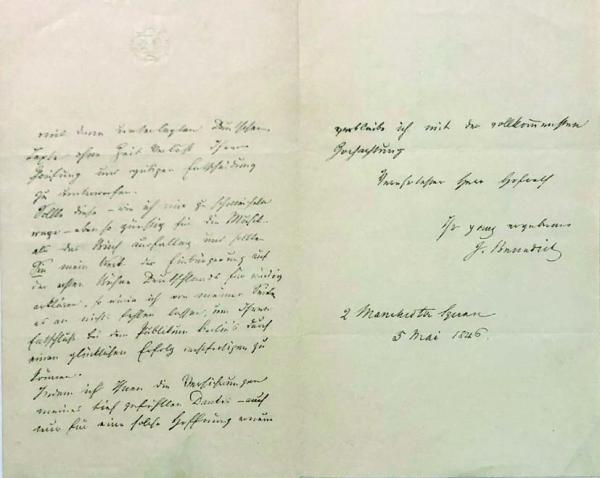 mit dem unterlegten Deutschen
Texte ohne Zeit Verlust Ihrer
Prüfung und gütigen Entscheidung
zu unterwerfen.
Sollte diese – wie ich mir zu schmeicheln
wage – eben so günstig für die Musik
als das Buch ausfallen und sollten
Sie mein Werk der Einbürgerung auf
der ersten Bühne Deutschlands für würdig
erklären, so würde ich von meiner Seite
es an nichts fehlen lassen, um Ihren
Entschluß bei dem Publikum Berlin's durch
einen glücklichen Erfolg rechtfertigen zu
können.
Indem ich Ihnen die Versicherungen
meines tief gefühlten Dankes – auch
nur für eine solche Hoffnung erneure
verbleibe ich mit der vollkommensten
Hochachtung
Verehrtester Herr Hofrath
Ihr ganz ergebener
J. Benedict
2 Manchester Square
5 Mai 1846.